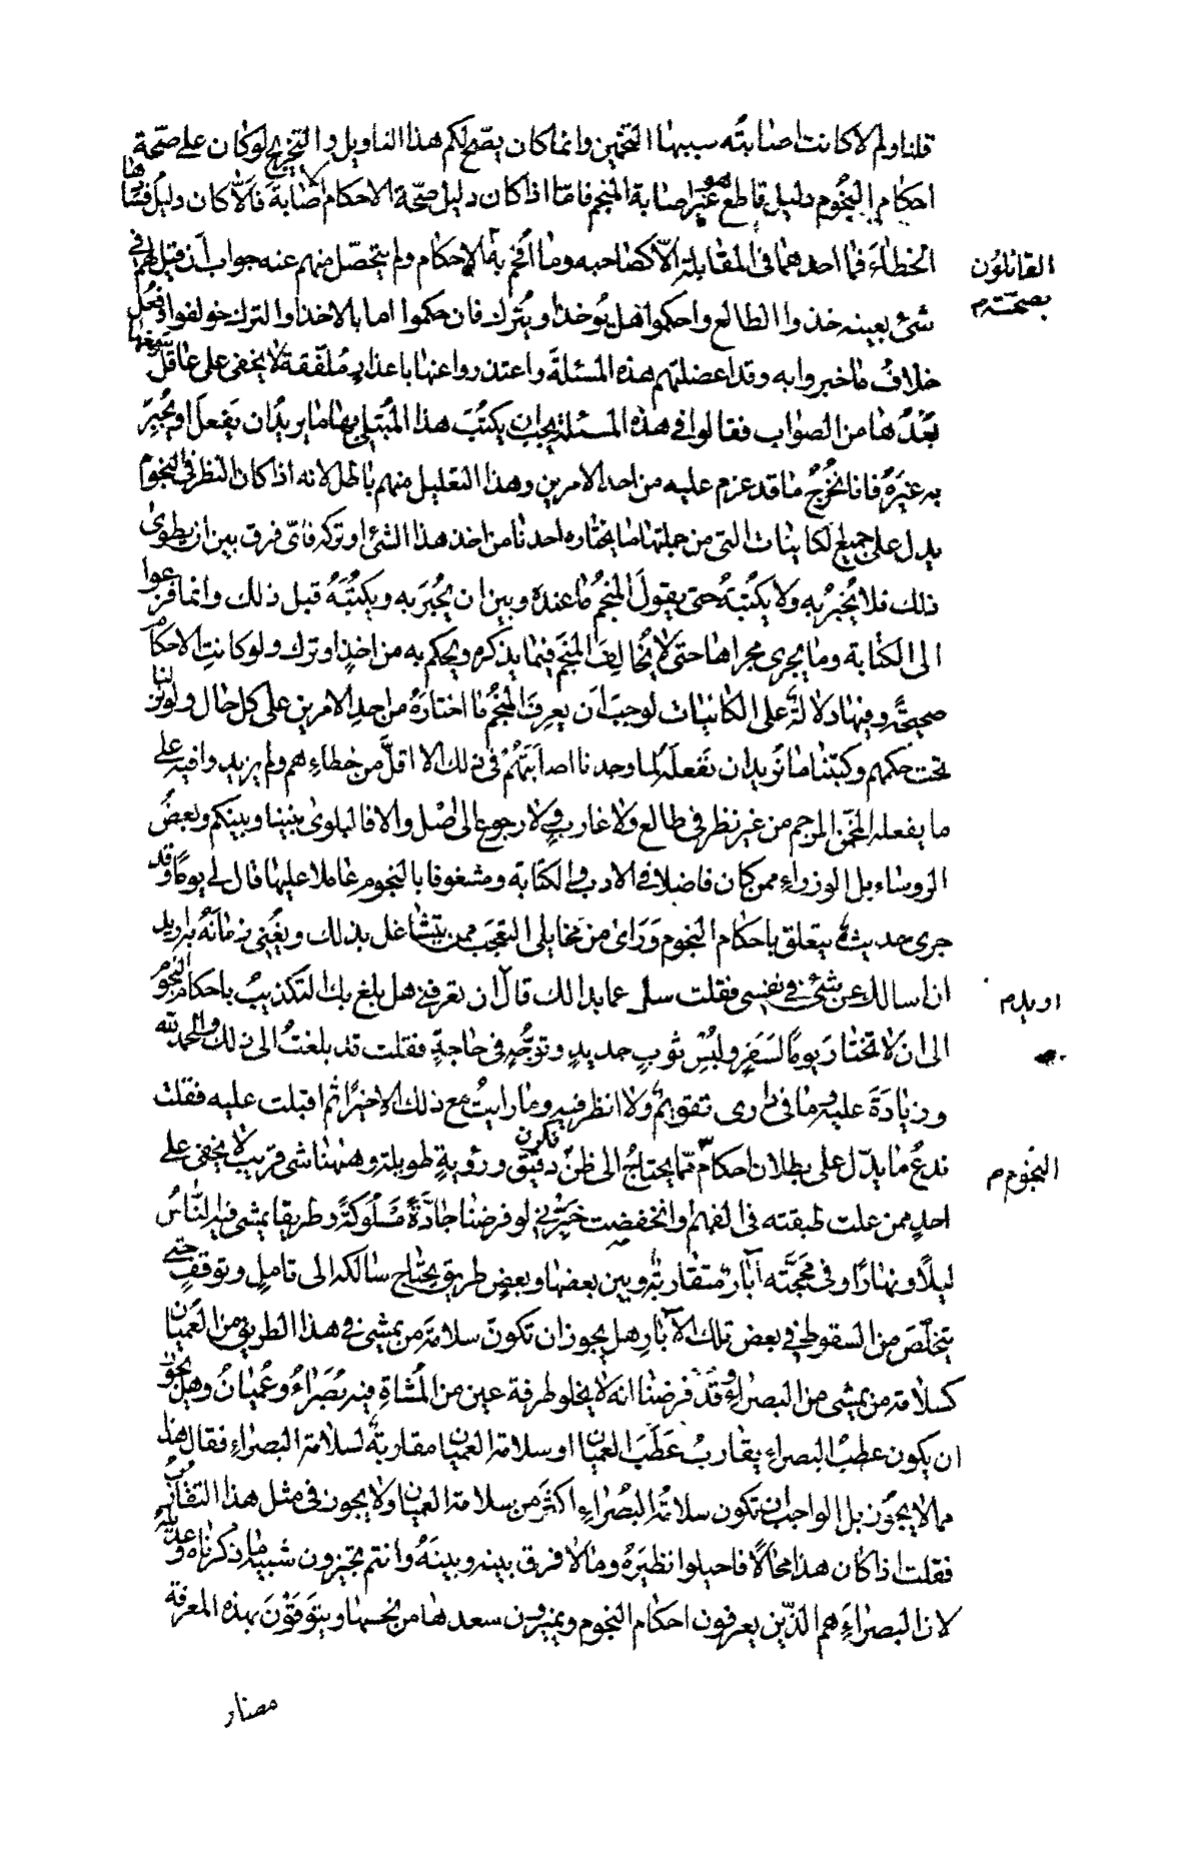 قلنا ولم لا كانت اصابته سببها التخمين وانما كان يصح لكم هذا التاويل والتخريج لو كان على صحة
احكام النجوم دليل قاطع هو غير اصابة المنجم فاما اذا كان دليل صحة الاحكام الاصابة فالا كان دليل فسادها
الخطاء فما احدهما في المقابلة الا كصاحبه وما افحم به الاحكام ولم يتحصل منهم عنه جواب ان قيل لهم في
القائلون
بصحة م
شئ بعينه خذوا الطالع واحكموا هل يُوخذ او يُترك فان حكموا اما بالاخذ او الترك خولفوا وفُعل
خلافُ ما خبروا به وقد اعضلتهم هذه المسئلة واعتذروا عنها باعذار مُلفّقة لا يخفى على عاقل سمعها
بُعْدُها من الصواب فقالوا في هذه المسئلة يجب ان يكتُبَ هذا المُبتلى بها ما يريدُ ان يَفعل او يُخبِرَ
به غيرَهُ فانا نُخرجُ ما قد عزم عليه من احد الامرين وهذا التعليل منهم باطل لانه اذا كان النظر في النجوم
يدل على جميع الكاينات التي من جملتها ما يختاره احدنا من اخذ هذا الشئ او تركه فاىّ فرق بين ان يطوى
ذلك فلا يُخبرُ به ولا يكتُبهُ حتى يقول المنجمُ ما عنده وبين ان يُخبرَ به ويكتُبَهُ قبل ذلك وانما فزعوا
الى الكتابة وما يجرى مجراها حتى لا يُخالِفَ المنجم فيما يذكره ويحكم به من اخذٍ او ترك ولو كانتِ الاحكام
صحيحةً وفيها دلالة على الكائنات لوجبَ ان يعرِفَ المنجمُ ما اختارَهُ من احدِ الامرين على كل حال ولو نزلنا
تحت حكمهم وكتبنا ما نُريد ان نفعلَهُ لما وجدنا اصابتَهُم في ذلك الا اقلَّ من خطاءِهم ولم يزيدوا فيه على
ما يفعله المخمن المرجم من غير نظر في طالع ولا غارب ولا رجوع الى اصل والا فالبلوى بيننا وبينكم وبعضُ
الروساء بل الوزراء ممن كان فاضلا في الادب والكتابة ومشغوفا بالنجوم عاملا عليها قال لي يومًا وقد
جرى حديث يتعلق باحكام النجوم وَرَاى من مخايلى التعجبَ ممن يتشاغل بذلك ويفُنِى زمانَهُ به اريد
ان اسالك عن شئ في نفسى فقلت سل عما بدا لك قال ان تعرفني هل بلغ بك التكذيبُ باحكام النجوم
او يدم
الى ان لا تختار يومًا لسَفَرٍ ولُبْسِ ثوبٍ جديدٍ وتوجُّهٍ في حاجةٍ فقلت قد بلغتُ الى ذلك والحمد لله
وزيادَةً عليه وما في دارى تقويم ولا انظر فيه وما رايتُ مع ذلك الا خيرًا ثم اقبلت عليه فقلت
ندعُ ما يدل على بطلان احكام مما يحتاجُ الى ظنّ دقيق ورؤيةٍ طويلة وههنا شى قريب لا يخفى على
فكرن
النجوم م
احدٍ ممن علت طبقته في الفهم او انخفضت خبّرني لو فرضنا جادَّةً مَسْلوكةً وطريقا يمشى فيه النّاسُ
ليلًا ونهارًا وفى مَحَجَّته آبارٌ متقاربةٌ وبين بعضها وبعضٍ طريق يحتاج سالكه الى تاملٍ وتوقفٍ حتى
يتخلّصَ من السقوط في بعض تلك الآبارِ هل يجوز ان تكونَ سلامةُ من يمشى في هذا الطريق من العميان
كسلامة من يمشى من البصراءِ وقد فرضنا انه لا يخلو طرفة عين من المُشاةِ فيه بُصَراءُ وعُميانٌ وهل يجوز
ان يكون عطبُ البصراءِ يقاربُ عَطَبَ العميان او سلامة العميان مقاربةً لسلامة البصراءِ فقال هذا
مما لا يجُوز بل الواجب ان تكون سلامةُ البُصراءِ اكثرَ من سلامة العميان ولا يجوز في مثل هذا التقاربُ
فقلت اذا كان هذا محالًا فاحيلوا نظيرَهُ وما لا فرق بينه وبينَهُ وانتم تجيزون شبيه ما ذكرناه وعديله
لان البصراءَ هم الذّين يعرفون احكام النجوم ويميزون سعدها من نحسها ويتوقَّوْنَ بهذه المعرفة
مضار